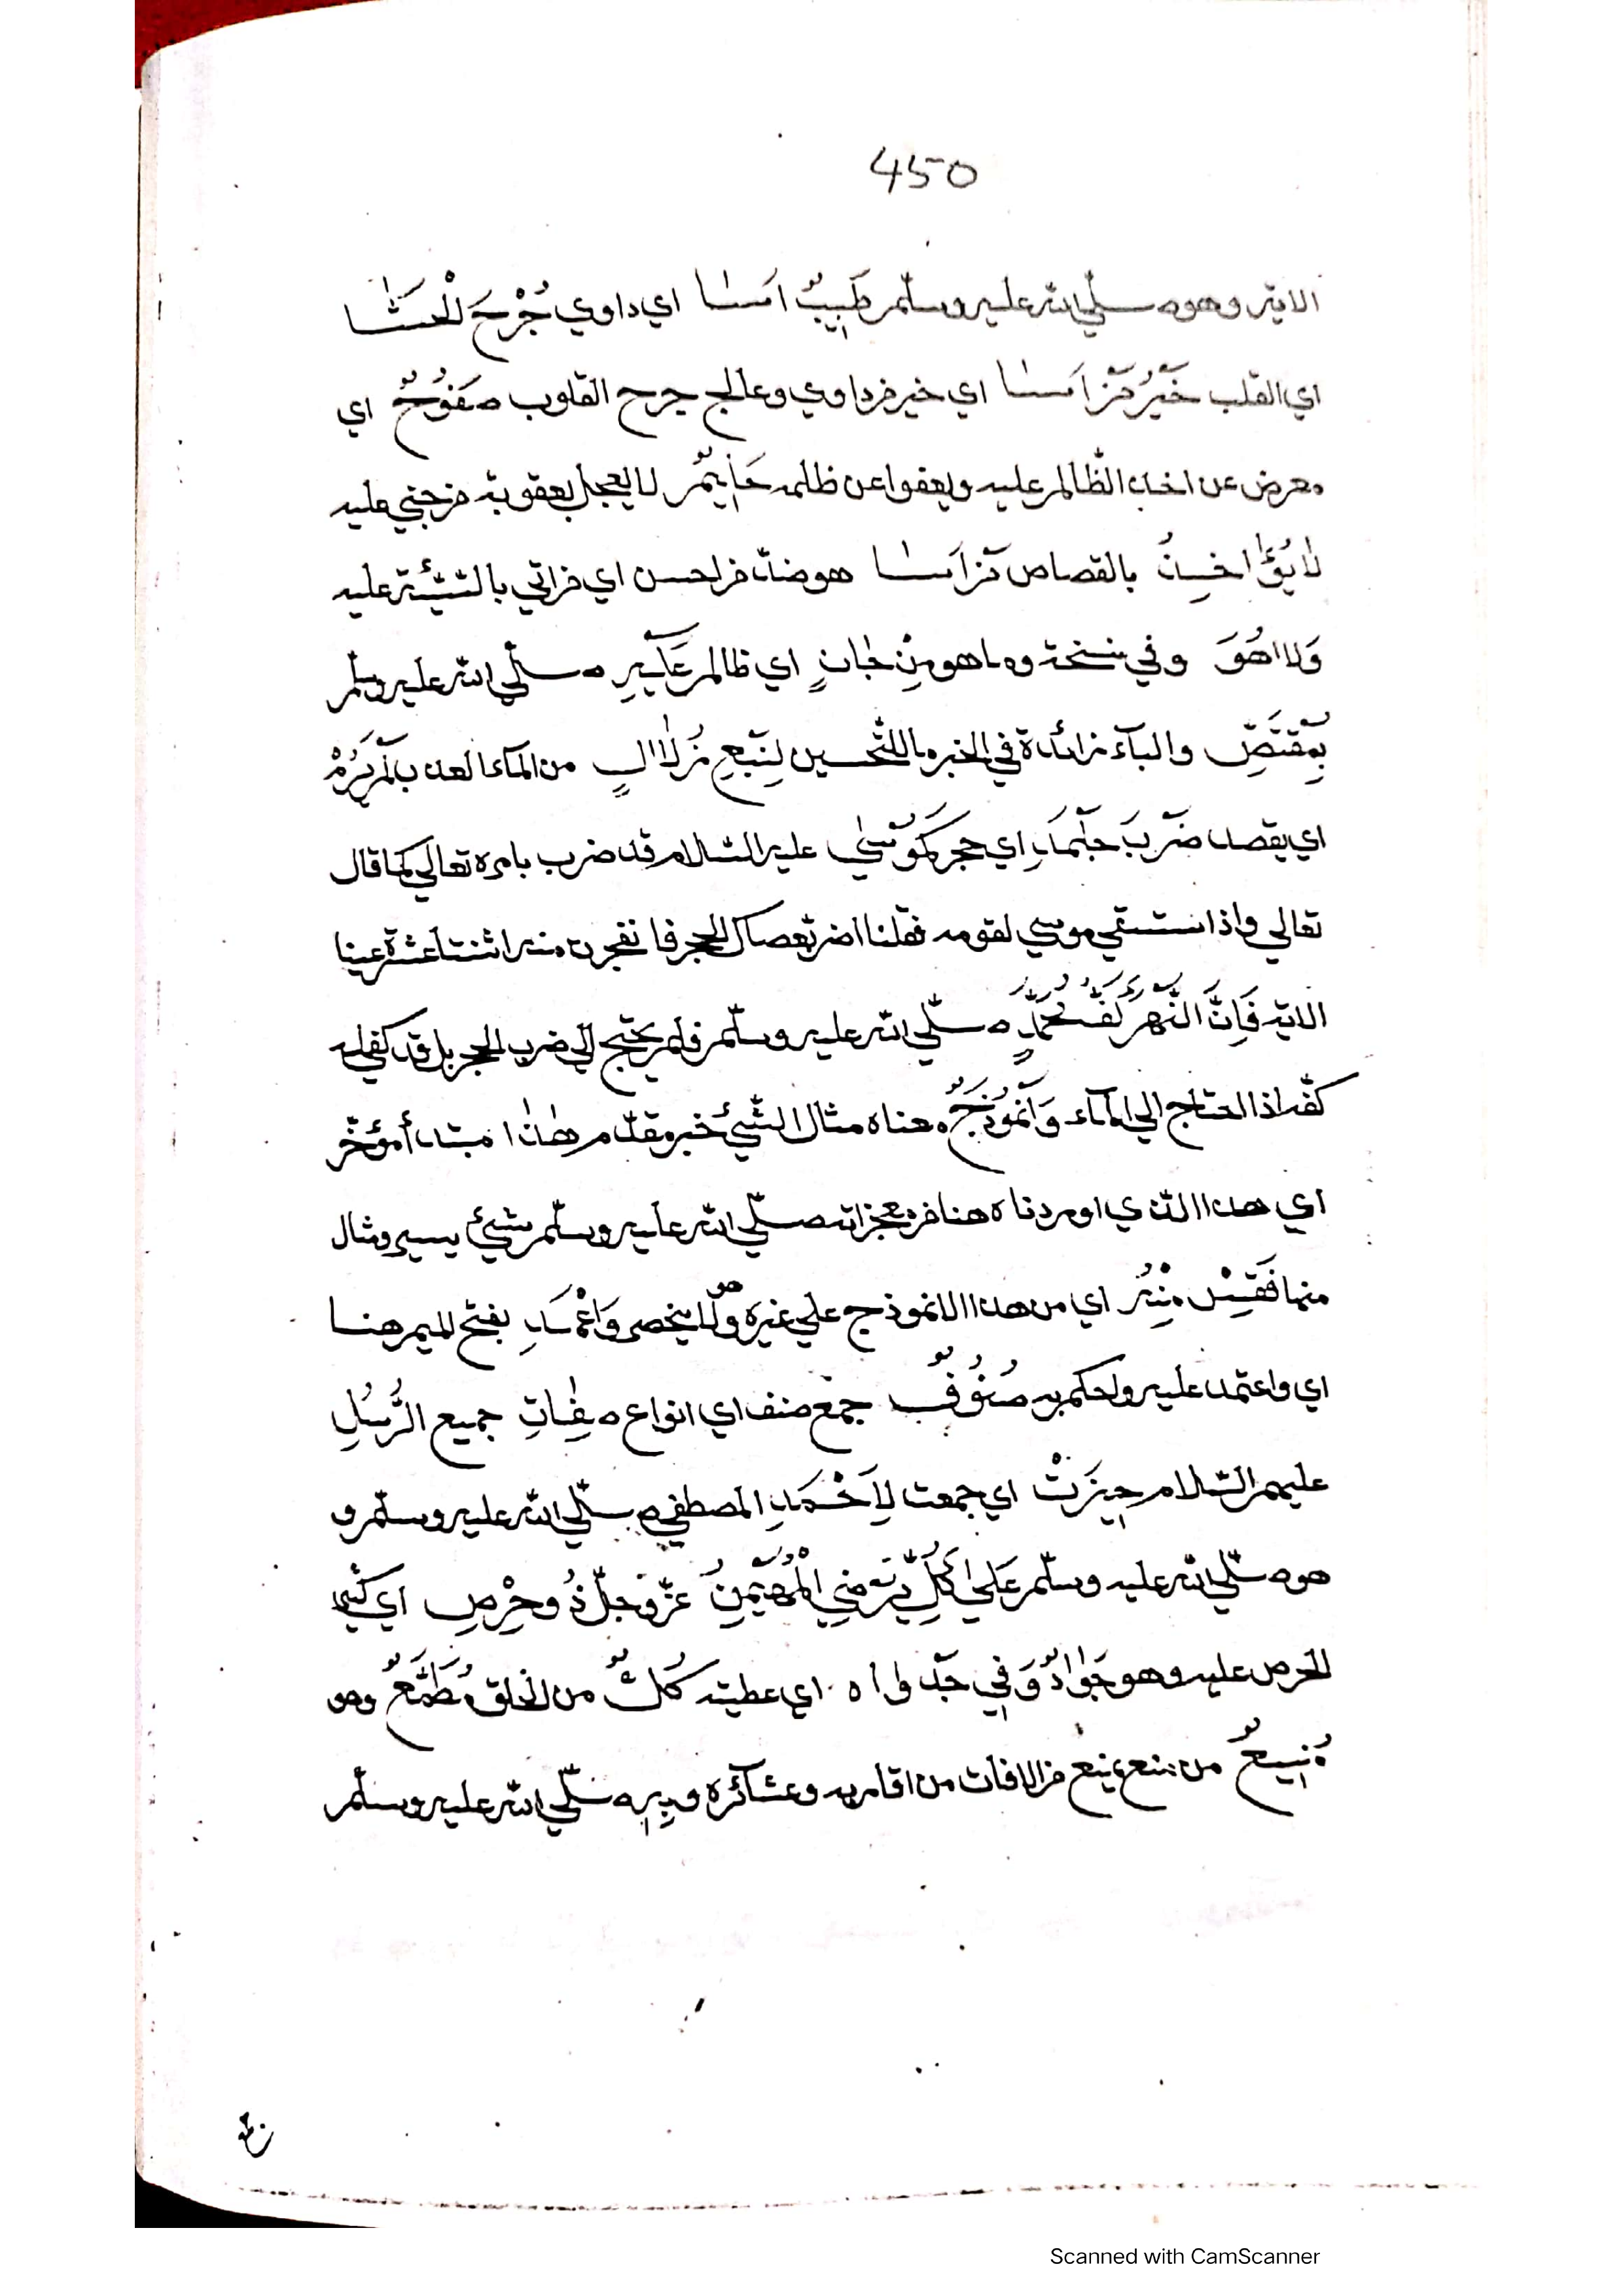 450
الاية وهو صلّي الله عليه وسلّم طَبِيبٌ اَسَا اي داوي جُرْحَ لْحَشَا
اي القلب خَيْرُ مَنْ اَسَا اي خير من داوي وعالج جرح القلوب صَفُوْحٌ اي
معرض عن اخذ الظّالم عليه ويعفوا عن ظلمه حَلِيْمٌ لا يعجل بعقوبة من جني عليه
لَا يُؤَاخِذُ بالقصاص مَنْ اَسَا هو ضدّ من احسن اي من اتي بالسّيّئة عليه
وَلَا هُوَ وفي نسخة وما هو مِنْ جَانٍ اي ظالم عَلَيْهِ صلّي الله عليه وسلّم
بِمُقْتَصِّ والبآء زائدة في الخبر باللتّحسين لِنَبْعِ زُلَالٍ من المآء العذب لَمْ يَرُمْ
اي يقصد ضَرْبَ جَلْمَدِ اي حجر كَمُوْسَي عليه السّلام قد ضرب بامره تعالي كما قال
تعالي واذ استسقي موسي لقومه فقلنا اضرب بعصاك الحجر فانفجرت منه اثنتا عشرة عينا
الاية فَاِنَّ النَّهْرَ كَفُّ مُحَمَّدٍ صلّي الله عليه وسلّم فلم يحتج الي ضرب الحجر بل قد كفي له
كفّه اذا احتاج الي المآء وَاَنْمُوْذَجٌ معناه مثال الشّيئ خبر مقدّم هَذَا مبتدأ مؤخّر
اي هذا الّذي اوردناه هنا من معجزاته صلّي الله عليه وسلّم شيئ يسير ومثال
منها فَقِسْ مِنْهُ اي من هذا الانموذج علي غيره ممّا لا يحصي وَاعْمَدِ بفتح الميم هنا
اي واعتمد عليه واحكم به صُنُوْفٌ جمع صنف اي انواع صِفَاتِ جميع الرُّسُلِ
عليهم السّلام حِيْزَتْ اي جمعت لِاَحْمَدِ المصطفي صلّي الله عليه وسلّم و
هو صلّي الله عليه وسلّم عَلَي كُلِّ مَا يُرْضِي الْمُهَيْمِنَ عزّ وجلّ ذُو حِرْصِ اي كثير
الحرص عليه وهو جَوَادٌ وَفِي جَدْوَاهُ اي عطيته كُلٌّ من الخلق مُطَمَّعٌ وهو
مَنِيعٌ من منع يمنع من الافات من اقاربه وعشآئره وبِهِ صلّي الله عليه وسلّم
Scanned with CamScanner